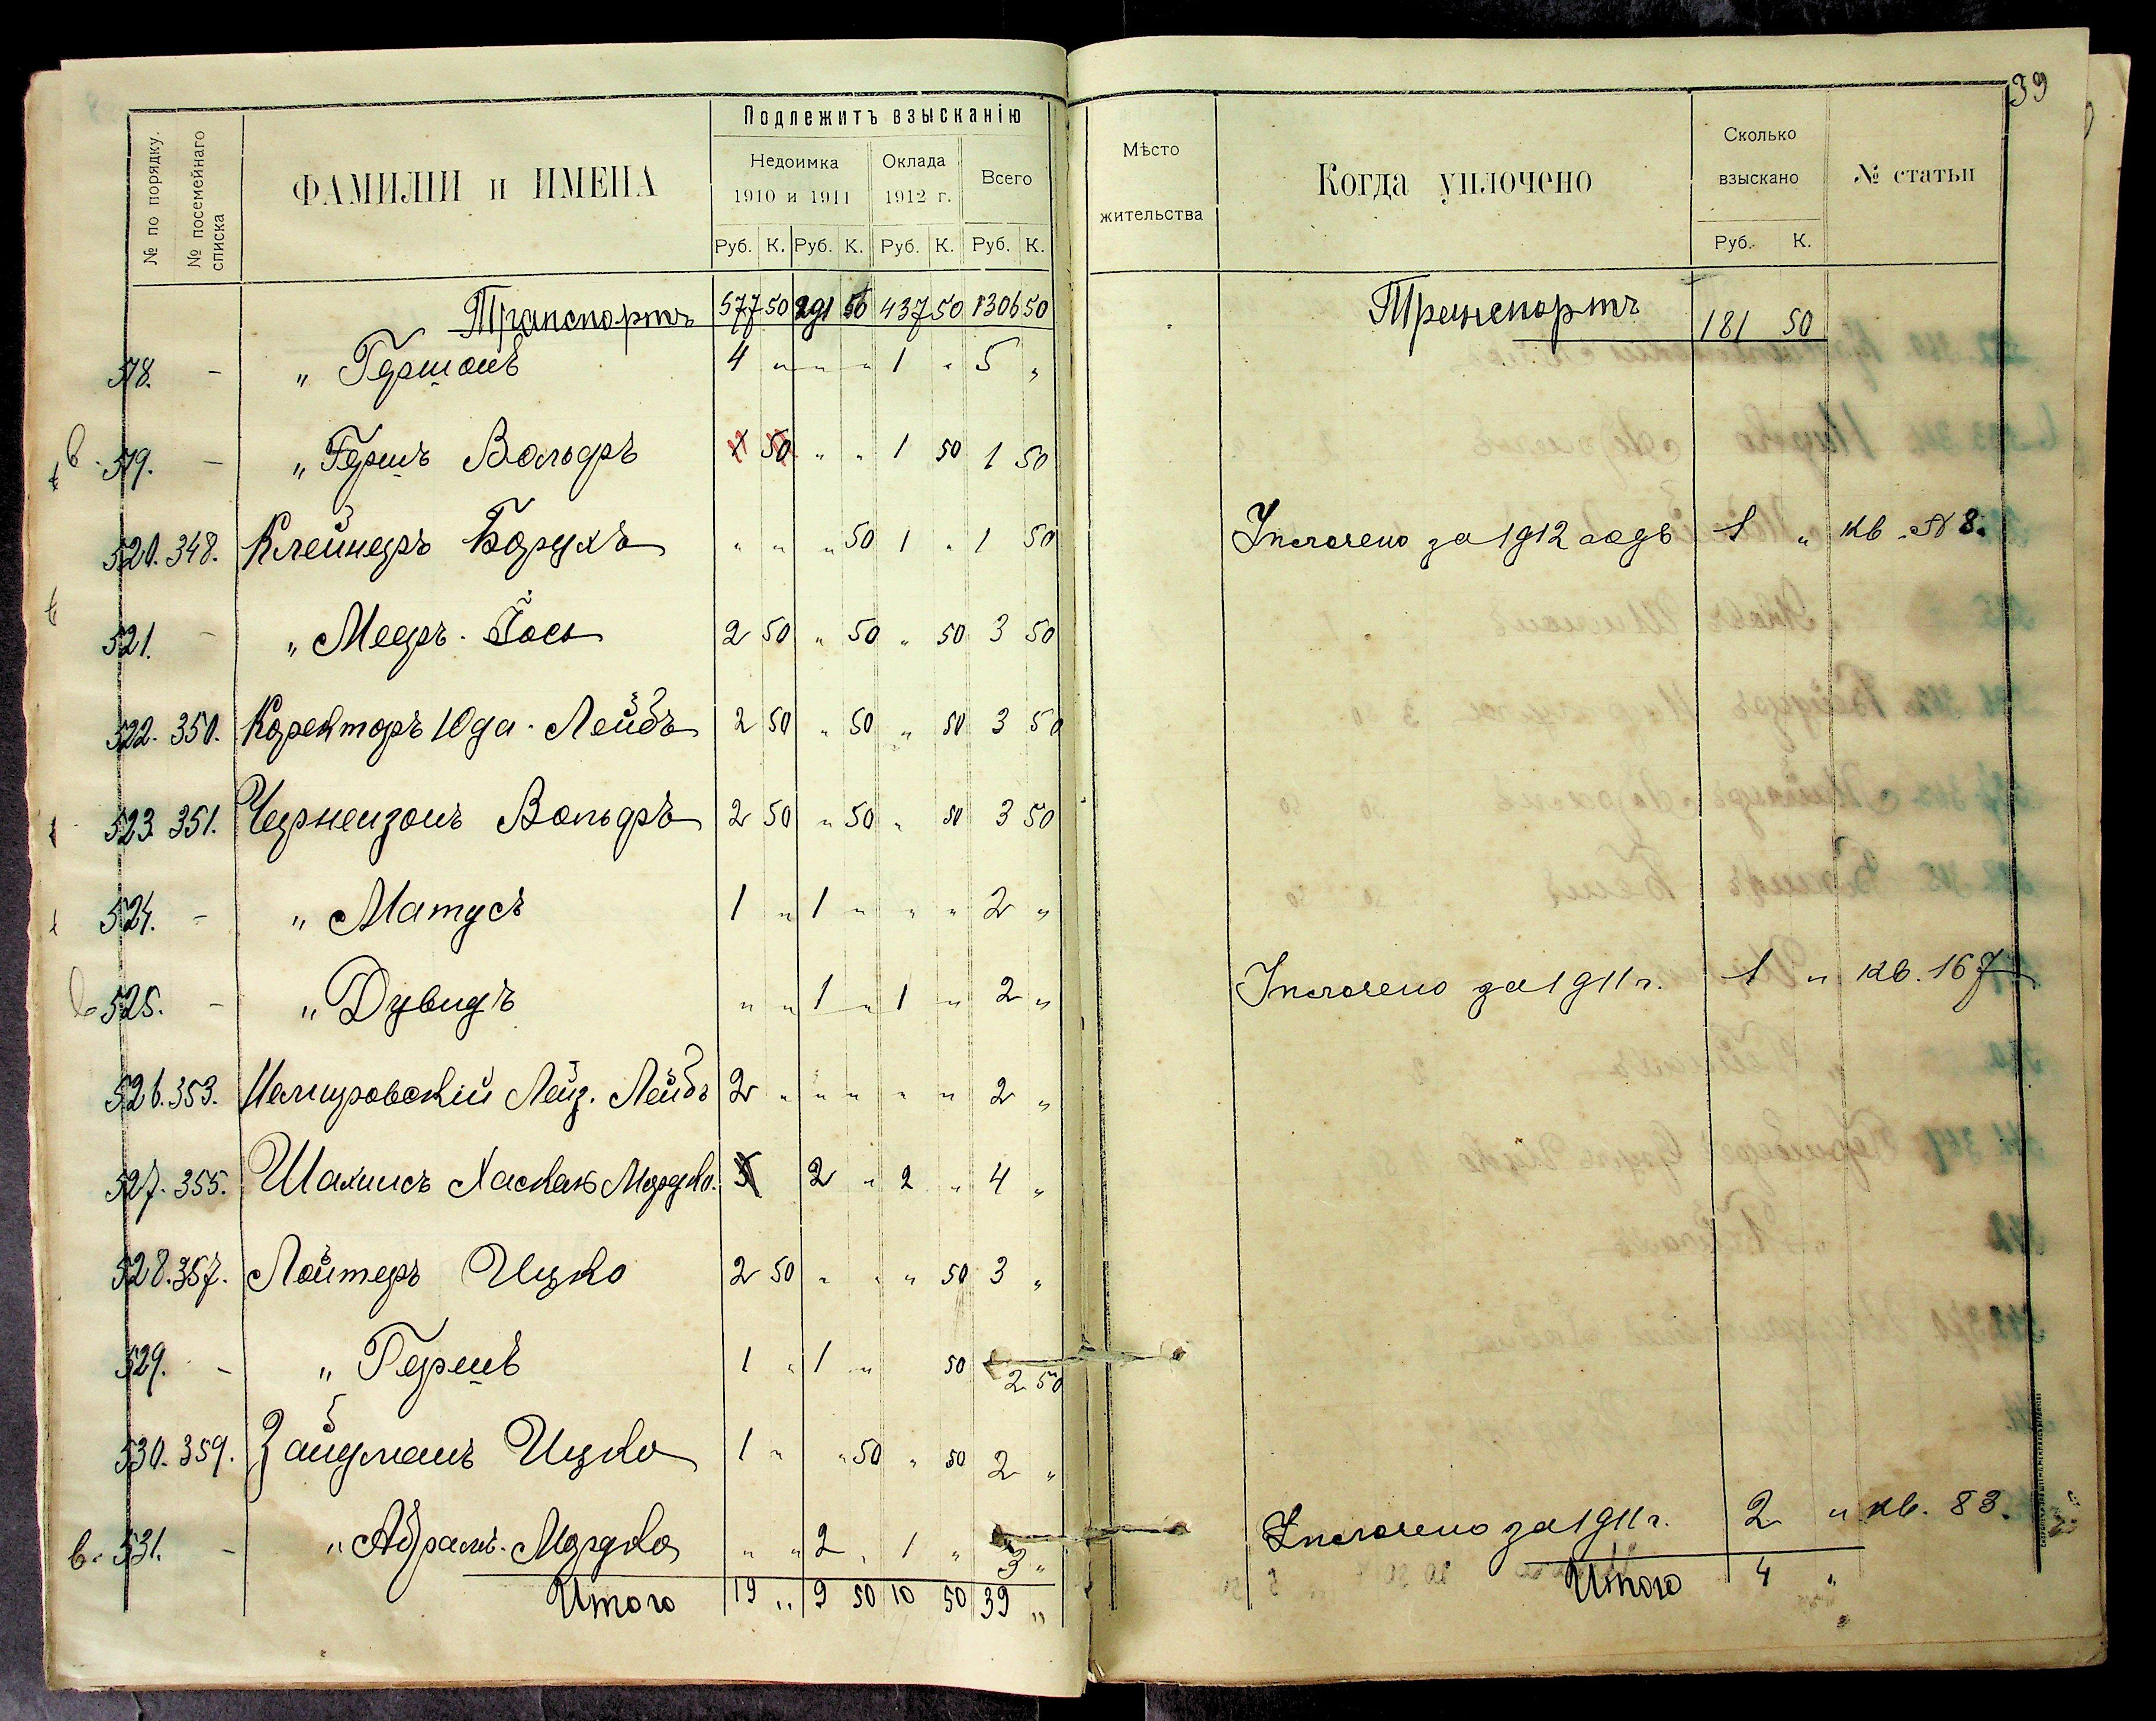 39
№ по порядку.
№ посемейнаго списка
ФАМИЛІИ и ИМЕНА
Подлежитъ взысканію
Недоимка
1910 и 1911
Оклада
1912 г.
Всего
Руб. К. Руб. К. Руб. К. Руб. К.
Транспортъ 577 50 291 50 437 50 1306 50
518. - „ Гершонъ 4 „ „ „ 1 „ 5 „
в. 519. - „ Гершъ Вольфъ 50 „ „ 1 50 1 50
520. 348. Клейнеръ Борухъ „ „ „ 50 1 „ 1 50
521. - „ Мееръ-Іось 2 50 „ 50 „ 50 3 50
522. 350. Коректоръ Юда-Лейбъ 2 50 „ 50 „ 50 3 50
523. 351. Чернензонъ Вольфъ 2 50 „ 50 „ 50 3 50
524. - „ Матусъ 1 „ 1 „ „ „ 2 „
525. - „ Дувидъ „ „ 1 „ 1 „ 2 „
526. 353. Немировскій Лейз. Лейбъ 2 „ „ „ „ „ 2 „
527. 355. Шахнисъ Хаскель Мордко. 2 „ 2 „ 4 „
528. 357. Лойтеръ Ицко 2 50 „ „ „ 50 3 „
529. - „ Гершъ 1 „ 1 „ 50 2 50
530. 359. Зайдманъ Ицко 1 „ „ 50 „ 50 2 „
в. 531. - „ Абрамъ-Мордко „ „ 2 „ 1 „ 3 „
Итого 19 „ 9 50 10 50 39 „
Мѣсто
жительства
Когда уплочено
Сколько
взыскано
Руб. К.
№ статьи
Транспортъ 181 50
Уплочено за 1912 годъ 1 „ кв. № 8.
Уплочено за 1911 г. 1 „ кв. 167
Уплочено за 1911 г. 2 „ кв. 83.
Итого 4 „